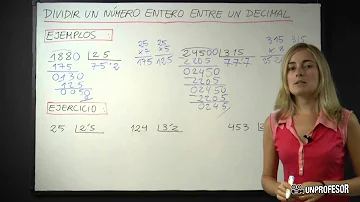 DIVIDIR UN NÚMERO ENTERO ENTRE UN DECIMAL
EJEMPLOS:
1880 25
175 75'2
0130
125
0050
25 25
x7 x5
175 125
24500 315
2205 77'7
02450
2205
02450
2205
0245
315 315
EJERCICIO:
25 2'5
124 3'2
453
UNPROFESOR